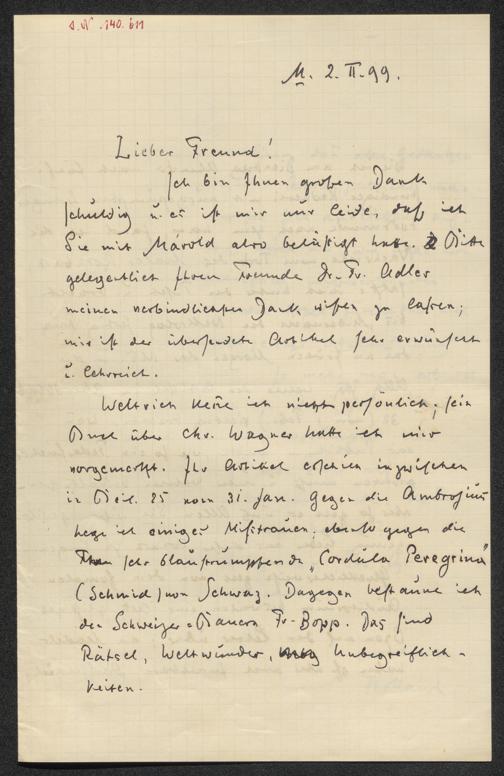 A.N. 140.611
M. 2. II. 99.
Lieber Freund!
Ich bin Ihnen großen Dank
schuldig u. es ist mir nur leide, daß ich
Sie mit Márold also belästigt habe. Bitte
gelegentlich Ihrem Freunde Dr. Fr. Adler
meinen verbindlichsten Dank wissen zu lassen;
mir ist der übersendete Artikel sehr erwünscht
u. lehrreich.
Weltrich kenne ich nicht persönlich; sein
Buch über Chr. Wagner hatte ich mir
vorgemerkt. Ihr Artikel erschien inzwischen
in Beil. 25 vom 31. Jan. Gegen die Ambrosius
hege ich einiges Mißtrauen, ebenso gegen die
sehr blaustrumpfende „Cordula Peregrina“
(Schmid) von Schwaz. Dagegen bestaune ich
den Schweizer-Bauern Fr. Bopp. Das sind
Rätsel, Weltwunder, Unbegreiflich-
keiten.